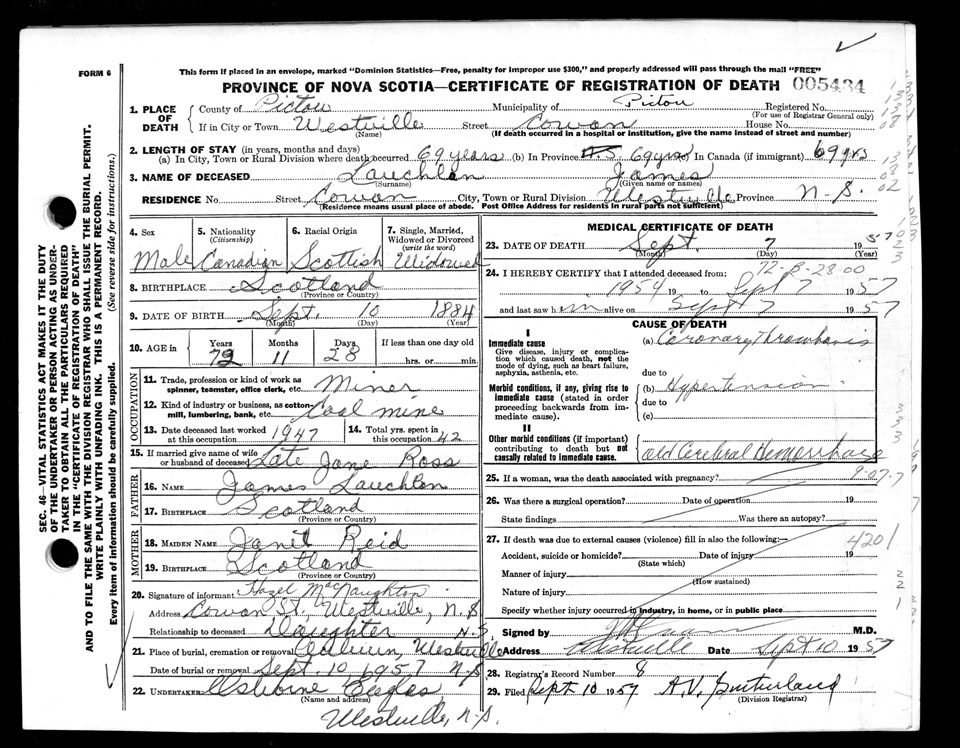 FORM 6
This form if placed in an envelope, marked "Dominion Statistics—Free, penalty for improper use $300," and properly addressed will pass through the mail "FREE"
PROVINCE OF NOVA SCOTIA—CERTIFICATE OF REGISTRATION OF DEATH 005434
1. PLACE OF DEATH County of Pictou Municipality of Pictou Registered No.
(For use of Registrar General only)
If in City or Town Westville Street Cowan House No.
(Name) (If death occurred in a hospital or institution, give the name instead of street and number)
2. LENGTH OF STAY (in years, months and days)
(a) In City, Town or Rural Division where death occurred 69 years (b) In Province N.S. 69 yrs In Canada (if immigrant) 69 yrs
3. NAME OF DECEASED Lauchlan James
(Surname) (Given name or names)
RESIDENCE No. Street Cowan City, Town or Rural Division Westville Province N-S.
(Residence means usual place of abode. Post Office Address for residents in rural parts not sufficient)
4. Sex Male
5. Nationality (Citizenship) Canadian
6. Racial Origin Scottish
7. Single, Married, Widowed or Divorced (write the word) Widowed
8. BIRTHPLACE Scotland
(Province or Country)
9. DATE OF BIRTH Sept. 10 1884
(Month) (Day) (Year)
10. AGE in Years Months Days If less than one day old
72 11 28 hrs. or min.
OCCUPATION
11. Trade, profession or kind of work as spinner, teamster, office clerk, etc. Miner
12. Kind of industry or business, as cotton-mill, lumbering, bank, etc. Coal mine
13. Date deceased last worked at this occupation 1947
14. Total yrs. spent in this occupation 42
15. If married give name of wife or husband of deceased Late Jane Ross
FATHER
16. NAME James Lauchlan
17. BIRTHPLACE Scotland
(Province or Country)
MOTHER
18. MAIDEN NAME Janet Reid
19. BIRTHPLACE Scotland
(Province or Country)
20. Signature of informant Hazel MacNaughton
Address Cowan St. Westville, N.S
Relationship to deceased Daughter N.S.
21. Place of burial, cremation or removal Auburn, Westville
Date of burial or removal Sept. 10 1957 N.S
22. UNDERTAKER Osborne
(Name and address)
Westville, N.S.
MEDICAL CERTIFICATE OF DEATH
23. DATE OF DEATH Sept. 7 1957
(Month) (Day) (Year)
72-8-28-00
24. I HEREBY CERTIFY that I attended deceased from:
1954 19 to Sept 7 1957
and last saw him alive on Sept 7 1957
CAUSE OF DEATH
I
Immediate cause
Give disease, injury or complication which caused death, not the mode of dying, such as heart failure, asphyxia, asthenia, etc.
(a) Coronary Thrombosis
due to
Morbid conditions, if any, giving rise to immediate cause (stated in order proceeding backwards from immediate cause).
(b) Hypertension
due to
(c)
II
Other morbid conditions (if important) contributing to death but not causally related to immediate cause.
old Cerebral Hemorrhage
25. If a woman, was the death associated with pregnancy? 9-07-7
26. Was there a surgical operation? Date of operation 19
State findings Was there an autopsy?
27. If death was due to external causes (violence) fill in also the following:— 4201
Accident, suicide or homicide? Date of injury 19
(State which)
Manner of injury
(How sustained)
Nature of injury
Specify whether injury occurred in industry, in home, or in public place
Signed by M.D.
Address Westville Date Sept 10 1957
28. Registrar's Record Number 8
29. Filed Sept 10 1957 A.V. Sutherland
(Division Registrar)
SEC. 46—VITAL STATISTICS ACT MAKES IT THE DUTY
OF THE UNDERTAKER OR PERSON ACTING AS UNDER-
TAKER TO OBTAIN ALL THE PARTICULARS REQUIRED
IN THE "CERTIFICATE OF REGISTRATION OF DEATH"
AND TO FILE THE SAME WITH THE DIVISION REGISTRAR WHO SHALL ISSUE THE BURIAL PERMIT.
WRITE PLAINLY WITH UNFADING INK. THIS IS A PERMANENT RECORD.
Every item of information should be carefully supplied. (See reverse side for instructions.)